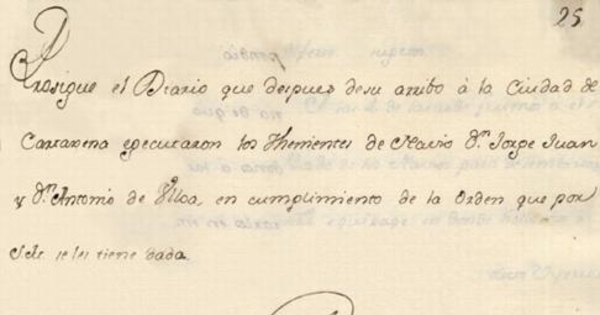 25
Prosigue el Diario que despues desu arribo à la Ciudad de
Cartaxena egecutaron los Thenientes de Navio Dn. Jorge Juan
y Dn. Antonio de Ulloa, en cumplimiento de la Orden que por
S. M. se les tiene dada.